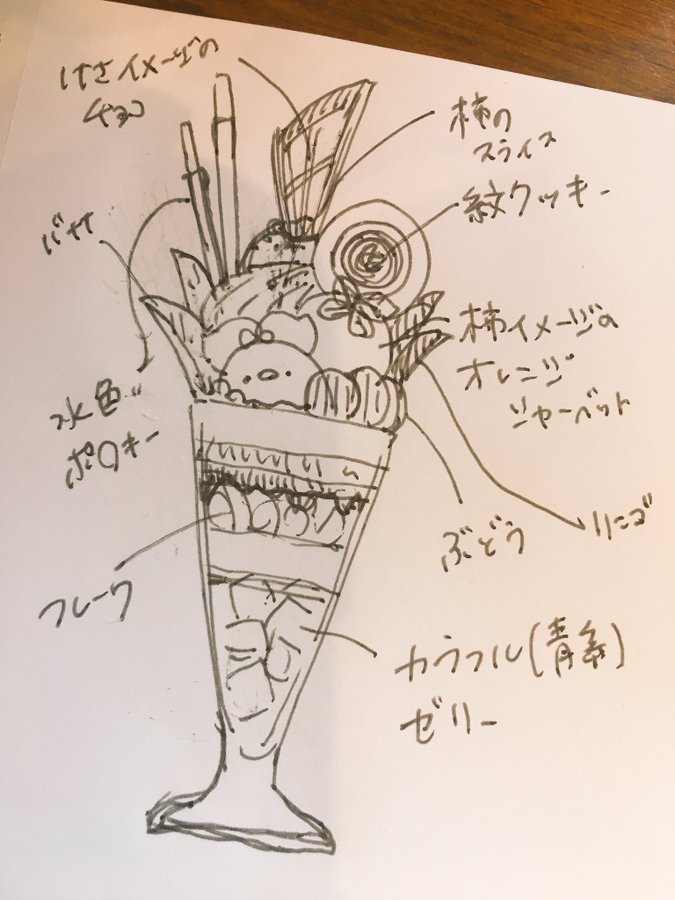 けさイメージの
チョコ
柿の
スライス
紋クッキー
バナナ
柿イメージの
オレンジ
シャーベット
水色
ポ○キー
ぶどう
りんご
フレーク
カラフル(青系)
ゼリー